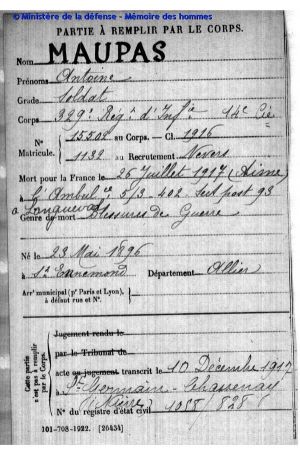 © Ministère de la défense - Mémoire des hommes
PARTIE À REMPLIR PAR LE CORPS.
Nom MAUPAS
Prénoms Antoine
Grade Soldat
Corps 329e Régt d'Infie 14e Cie
N° 15501 au Corps. - Cl. 1916
Matricule. 1132 au Recrutement Nevers
Mort pour la France le 26 Juillet 1917 (Aisne)
à l'Ambulce 5/3 - 402 Sect post 93
à Longueval
Genre de mort Blessures de Guerre
Né le 23 Mai 1896
à St Ennemond Département Allier
Arrt municipal (pr Paris et Lyon),
à défaut rue et N°.
Cette partie n'est pas à remplir par le Corps.
Jugement rendu le
par le Tribunal de
acte ou jugement transcrit le 10 Décembre 1917
St Germain - Chassenay
(Nièvre)
N° du registre d'état civil 1058/828
101-708-1922. [26434]